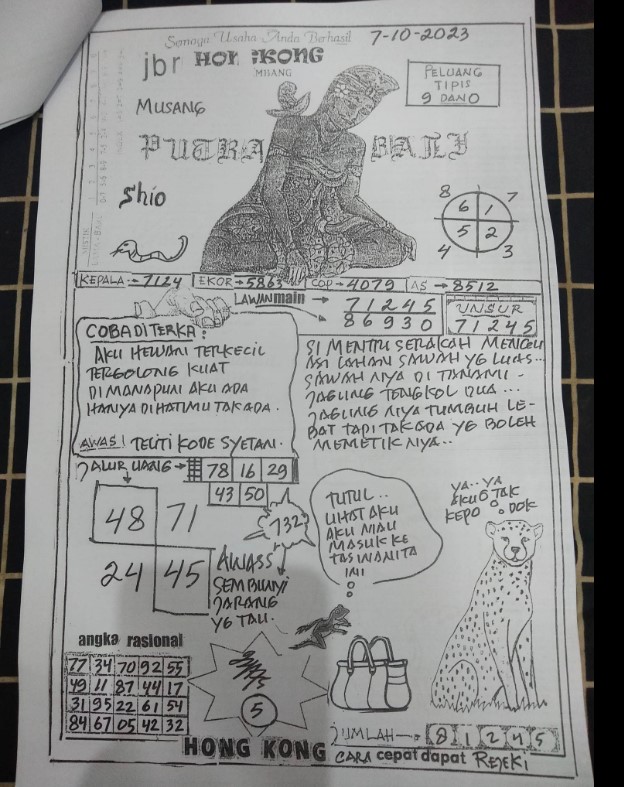 Semoga Usaha Anda Berhasil
7-10-2023
jbr HONGKONG
MBANG
PELUANG
TIPIS
9 DAN 0
MUSANG
PUTRA BALI
Shio
8 7
6 1
5 2
4 3
KEPALA → 7124 EKOR → 5863 COP → 4079 AS → 8512
LAWAN main → 71245
86930
UNSUR
71245
COBA DITERKA :
AKU HEWAN TERKECIL
TERGOLONG KUAT
DIMANAPUN AKU ADA
HANYA DIHATIMU TAK ADA.
AWAS! TELITI KODE SYETAN.
SI MENTRI SERAKAH MENGU
ASI LAHAN SAWAH YG LUAS...
SAWAH NYA DI TANAMI -
JAGUNG TENGKOL DUA ...
JAGUNG NIYA TUMBUH LE-
BAT TAPI TAK ADA YG BOLEH
MEMETIK NIYA..
JALUR UANG → 78 16 29
43 50
48 71
24 45
732
AWASS
SEMBUNYI
JARANG
YG TAU.
TUTUL..
LIHAT AKU
AKU MAU
MASUK KE
TAS WANITA
INI
YA..YA
AKU OTAK
KEPO DOK
angka rasional
77 34 70 92 55
49 11 87 44 17
31 95 22 61 54
84 67 05 42 32
5
JUMLAH → 8 1 2 4 5
HONG KONG CARA cepat dapat REJEKI